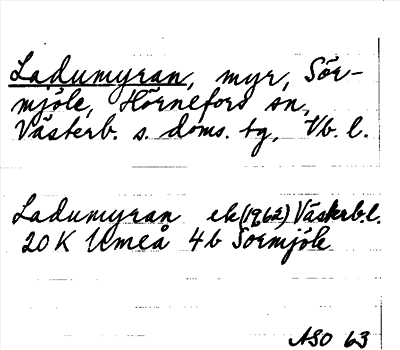 Ladumyran, myr, Sör-
mjöle, Hörnefors sn,
Västerb. s. doms. tg, Vb. l.
Ladumyran ek (1962) Västerb.l.
20 K Umeå 4b Sörmjöle
ASO 63